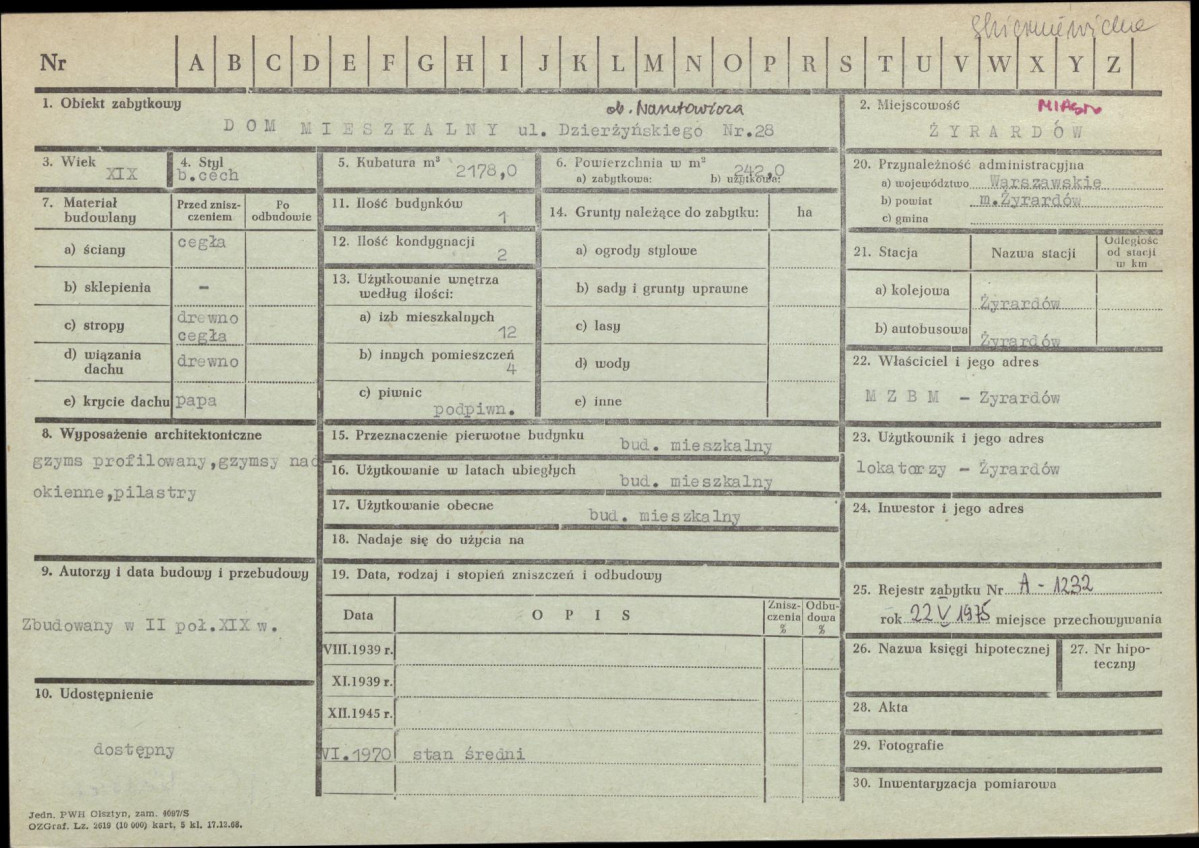 Skierniewickie
Nr A B C D E F G H I J K L M N O P R S T U V W X Y Z
1. Obiekt zabytkowy
ob. Narutowicza
DOM MIESZKALNY ul. Dzierżyńskiego Nr.28
2. Miejscowość MIASTO
ŻYRARDÓW
3. Wiek
XIX
4. Styl
b.cech
5. Kubatura m³
2178,0
6. Powierzchnia w m²
a) zabytkowa: b) użytkowa:
242,0
7. Materiał budowlany
Przed zniszczeniem
Po odbudowie
a) ściany cegła
b) sklepienia –
c) stropy drewno
cegła
d) wiązania dachu drewno
e) krycie dachu papa
8. Wyposażenie architektoniczne
gzyms profilowany,gzymsy nad-
okienne,pilastry
9. Autorzy i data budowy i przebudowy
Zbudowany w II poł.XIX w.
10. Udostępnienie
dostępny
11. Ilość budynków
1
12. Ilość kondygnacji
2
13. Użytkowanie wnętrza
według ilości:
a) izb mieszkalnych
12
b) innych pomieszczeń
4
c) piwnic
podpiwn.
14. Grunty należące do zabytku: ha
a) ogrody stylowe
b) sady i grunty uprawne
c) lasy
d) wody
e) inne
15. Przeznaczenie pierwotne budynku
bud. mieszkalny
16. Użytkowanie w latach ubiegłych
bud. mieszkalny
17. Użytkowanie obecne
bud. mieszkalny
18. Nadaje się do użycia na
19. Data, rodzaj i stopień zniszczeń i odbudowy
Data OPIS Zniszczenia % Odbudowa %
VIII.1939 r.
XI.1939 r.
XII.1945 r.
VI.1970 stan średni
20. Przynależność administracyjna
a) województwo Warszawskie
b) powiat m.Żyrardów
c) gmina
21. Stacja Nazwa stacji Odległość od stacji w km
a) kolejowa Żyrardów
b) autobusowa Żyrardów
22. Właściciel i jego adres
M Z B M – Żyrardów
23. Użytkownik i jego adres
lokatorzy – Żyrardów
24. Inwestor i jego adres
25. Rejestr zabytku Nr A - 1232
rok 22 V 1975 miejsce przechowywania
26. Nazwa księgi hipotecznej
27. Nr hipoteczny
28. Akta
29. Fotografie
30. Inwentaryzacja pomiarowa
Jedn. PWH Olsztyn, zam. 4697/S
OZGraf. Lz. 2619 (10 000) kart, 5 kl. 17.12.68.